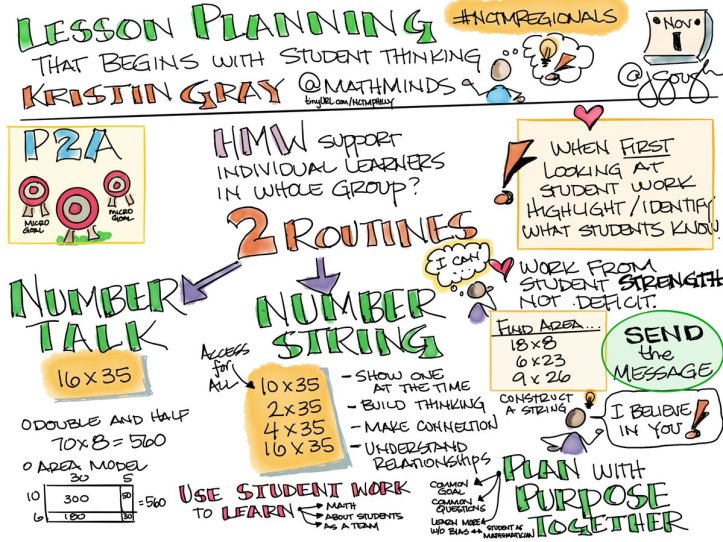 LESSON PLANNING
THAT BEGINS WITH STUDENT THINKING
KRISTIN GRAY @MATHMINDS
tinyURL.com/NCTMPHILLY
#NCTMREGIONALS
Nov
1
@jgough
P2A
MICRO
GOAL
MICRO
GOAL
HMW SUPPORT
INDIVIDUAL LEARNERS
IN WHOLE GROUP?
WHEN FIRST
LOOKING AT
STUDENT WORK
HIGHLIGHT/IDENTIFY
WHAT STUDENTS KNOW.
2 ROUTINES
NUMBER
TALK
16 x 35
O DOUBLE AND HALF
70 x 8 = 560
O AREA MODEL
30 5
10 300 50 =560
6 180 30
NUMBER
STRING
ACCESS
for
ALL
10 x 35
2 x 35
4 x 35
16 x 35
- SHOW ONE
AT THE TIME
- BUILD THINKING
- MAKE CONNECTION
- UNDERSTAND
RELATIONSHIPS
I CAN
WORK FROM
STUDENT STRENGTH
NOT DEFICIT.
FIND AREA...
18 x 8
6 x 23
9 x 26
CONSTRUCT
A STRING
SEND
the
MESSAGE
I BELIEVE
IN YOU!
USE STUDENT WORK
TO LEARN
MATH
ABOUT STUDENTS
AS A TEAM
PLAN WITH
PURPOSE
TOGETHER
COMMON
GOAL
COMMON
QUESTIONS
LEARN MORE
W/O BIAS
STUDENT AS
MATHEMATICIAN